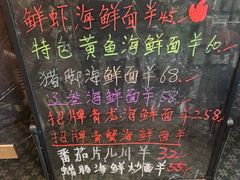 鲜虾海鲜面￥45
特色黄鱼海鲜面￥60
猪脚海鲜面￥68
海鲜面￥58
招牌青龙海鲜面￥258
招牌青蟹海鲜面￥
番茄片儿川￥32
海鲜炒面￥55